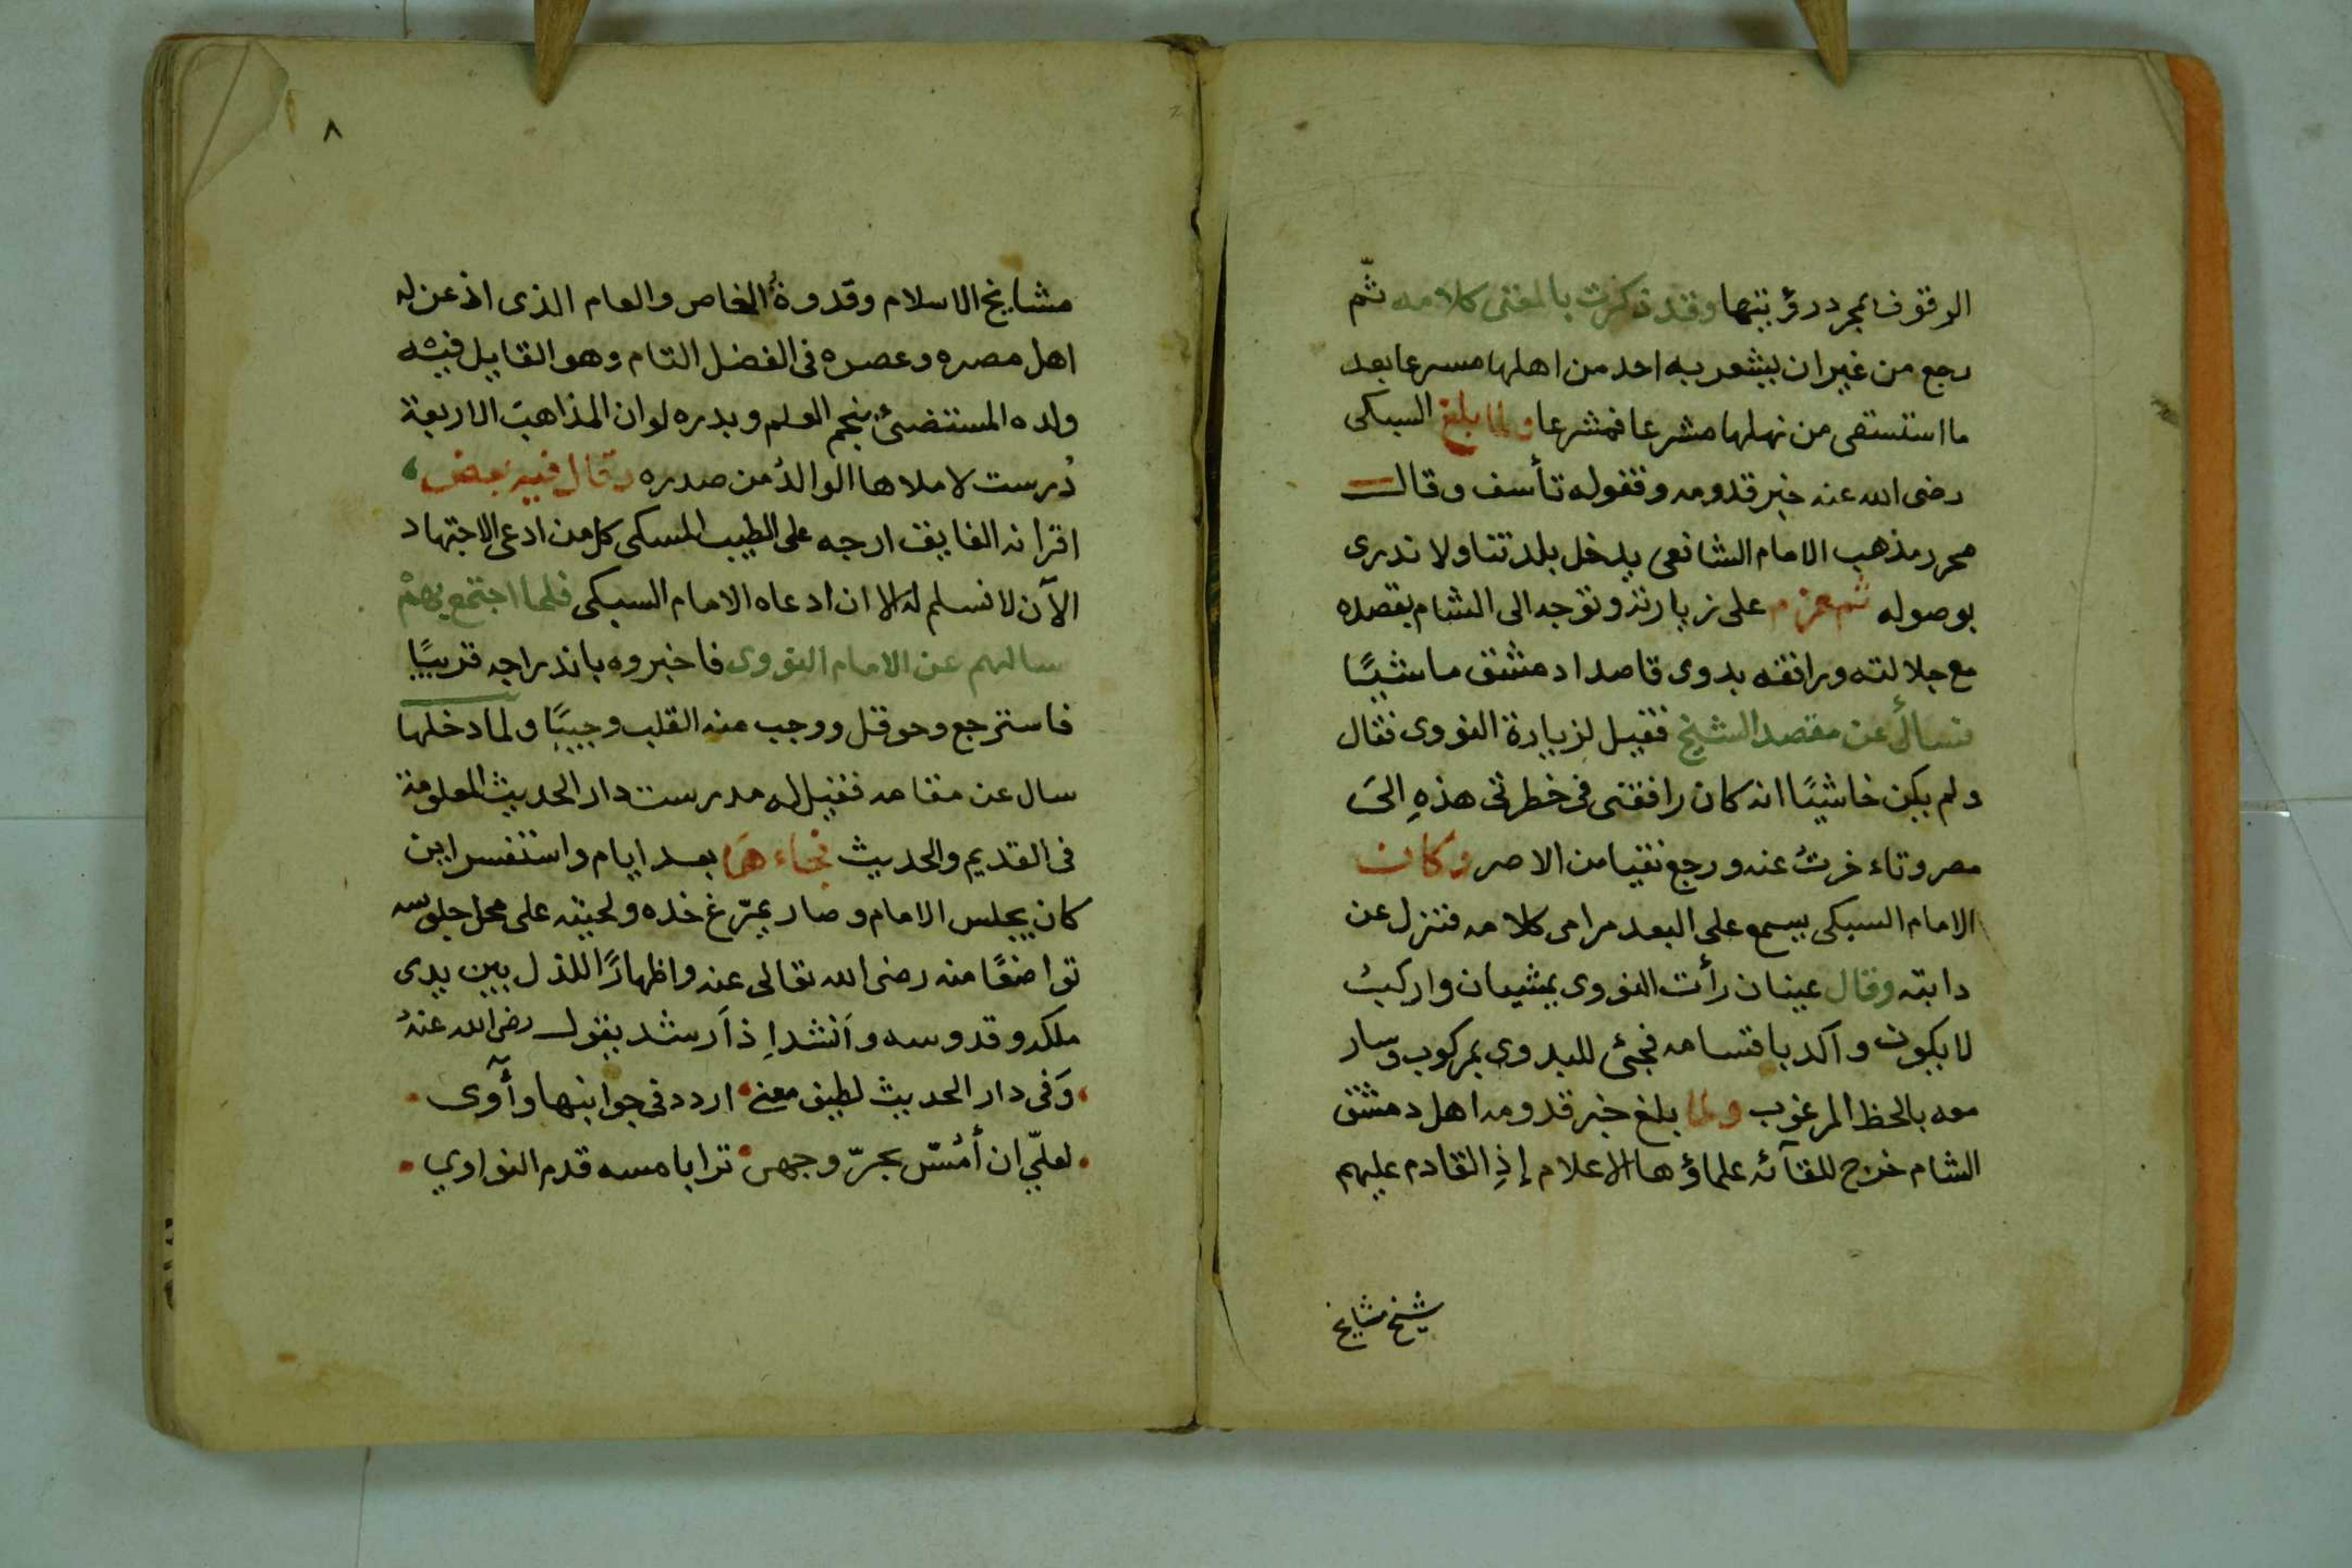 الوقوف بمجرد رؤيتها وقد ذكرت بالمعنى كلامه ثم
رجع من غير ان يشعر به احد من اهلها مسرعا بعد
ما استسقى من نهلها مشرعا فمشرعا ولما بلغ السبكى
رضى الله عنه خبر قدومه وقفوله تأسف وقال
محرر مذهب الامام الشافعى يدخل بلدتنا ولا ندرى
بوصوله ثم عزم على زيارته وتوجه الى الشام بقصده
مع جلالته ورافقه بدوى قاصدا دمشق ماشيًا
فسأل عن مقصد الشيخ فقيل لزيارة النووى فقال
ولم يكن خاشيًا انه كان رافقنى فى خطرتى هذهِ الىَ
مصر وتاءخرتُ عنه ورجع نقيا من الاصر وكان
الامام السبكى يسمع على البعد مرامى كلامه فنزل عن
دابته وقال عينان رأت النووى يمشيان واركبُ
لا يكون وآكد باقسامه فجئ للبدوى بمركوب وسار
معه بالحظ المرغوب ولما بلغ خبر قدومه اهل دمشق
الشام خرج للقآئه علماؤها الاعلام إذِ القادم عليهم
شيخ مشايخ
٨
مشايخ الاسلام وقدوةُ الخاص والعام الذى اذعن له
اهل مصره وعصره فى الفضل التام وهو القايل فيه
ولده المستضئ بنجم العلم وبدره لو ان المذاهبَ الاربعة
دُرست لاملاها الوالدُ من صدره وقال فيه بعض
اقرانه الفايف ارجه على الطيب المسكى كل من ادعى الاجتهاد
الآن لا نسلم له الا ان ادعاه الامام السبكى فلما اجتمع بهمْ
سالهم عن الامام النووى فاخبروه بانه راجه قريبًا
فاسترجع وحوقل ووجب منه القلب وجيبًا ولما دخلها
سال عن مقامه فقيل له مدرست دار الحديث المعلومة
فى القديم والحديث فجاءهَا بعد ايام واستفسر اين
كان يجلس الامام وصار يمرّغ خده ولحيته على محل جلوسه
تواضعًا منه رضى الله تعالى عنه واظهارًا للذل بين يدى
ملكه وقدوسه وَانشد اِذ اَرشد بقول رضى الله عنهُ
وَفى دار الحديث لطيف معنى اردد فى جوانبها وأۤوى
لعلّي ان أمُسّ بحرّ وجهى ترابا مسه قدم النواوي